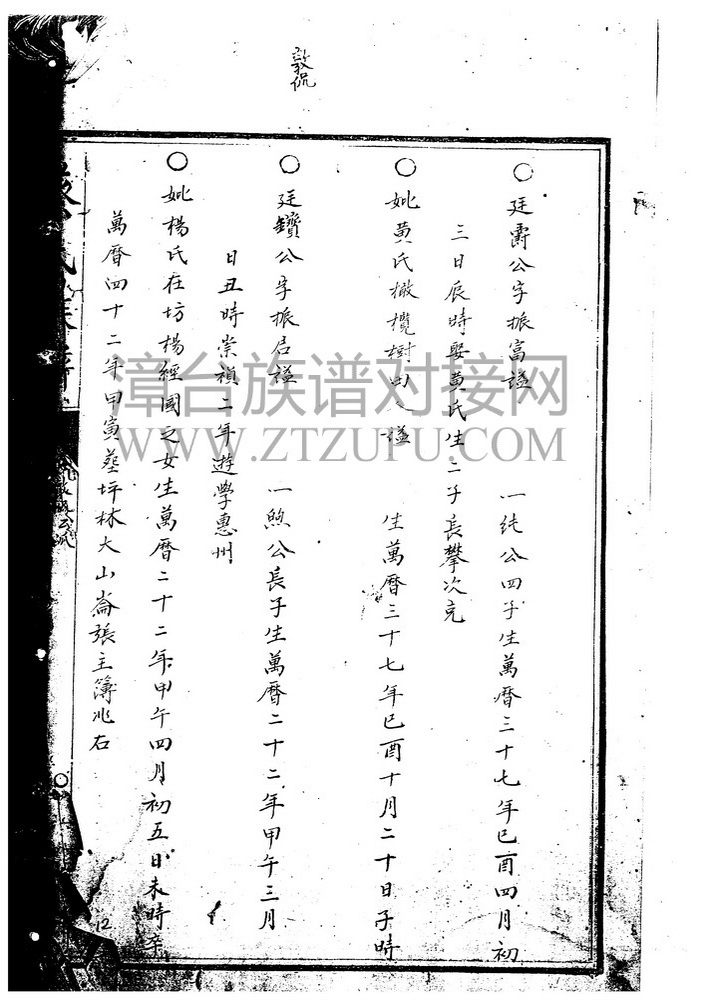 敦侃
○廷爵公字振富諡 一純公四子生萬曆三十七年己酉四月初
三日辰時娶黃氏生二子長攀次克
○妣黃氏橄欖樹田人諡 生萬曆三十七年己酉十月二十日子時
○廷鑽公字振居諡 一煦公長子生萬曆二十二年甲午三月
日丑時崇禎二年遊學惠州
○妣楊氏在坊楊經國之女生萬曆二十二年甲午四月初五日未時卒
萬曆四十二年甲寅葬坪林大山崙張主簿兆右
12
漳台族谱对接网
WWW.ZTZUPU.COM